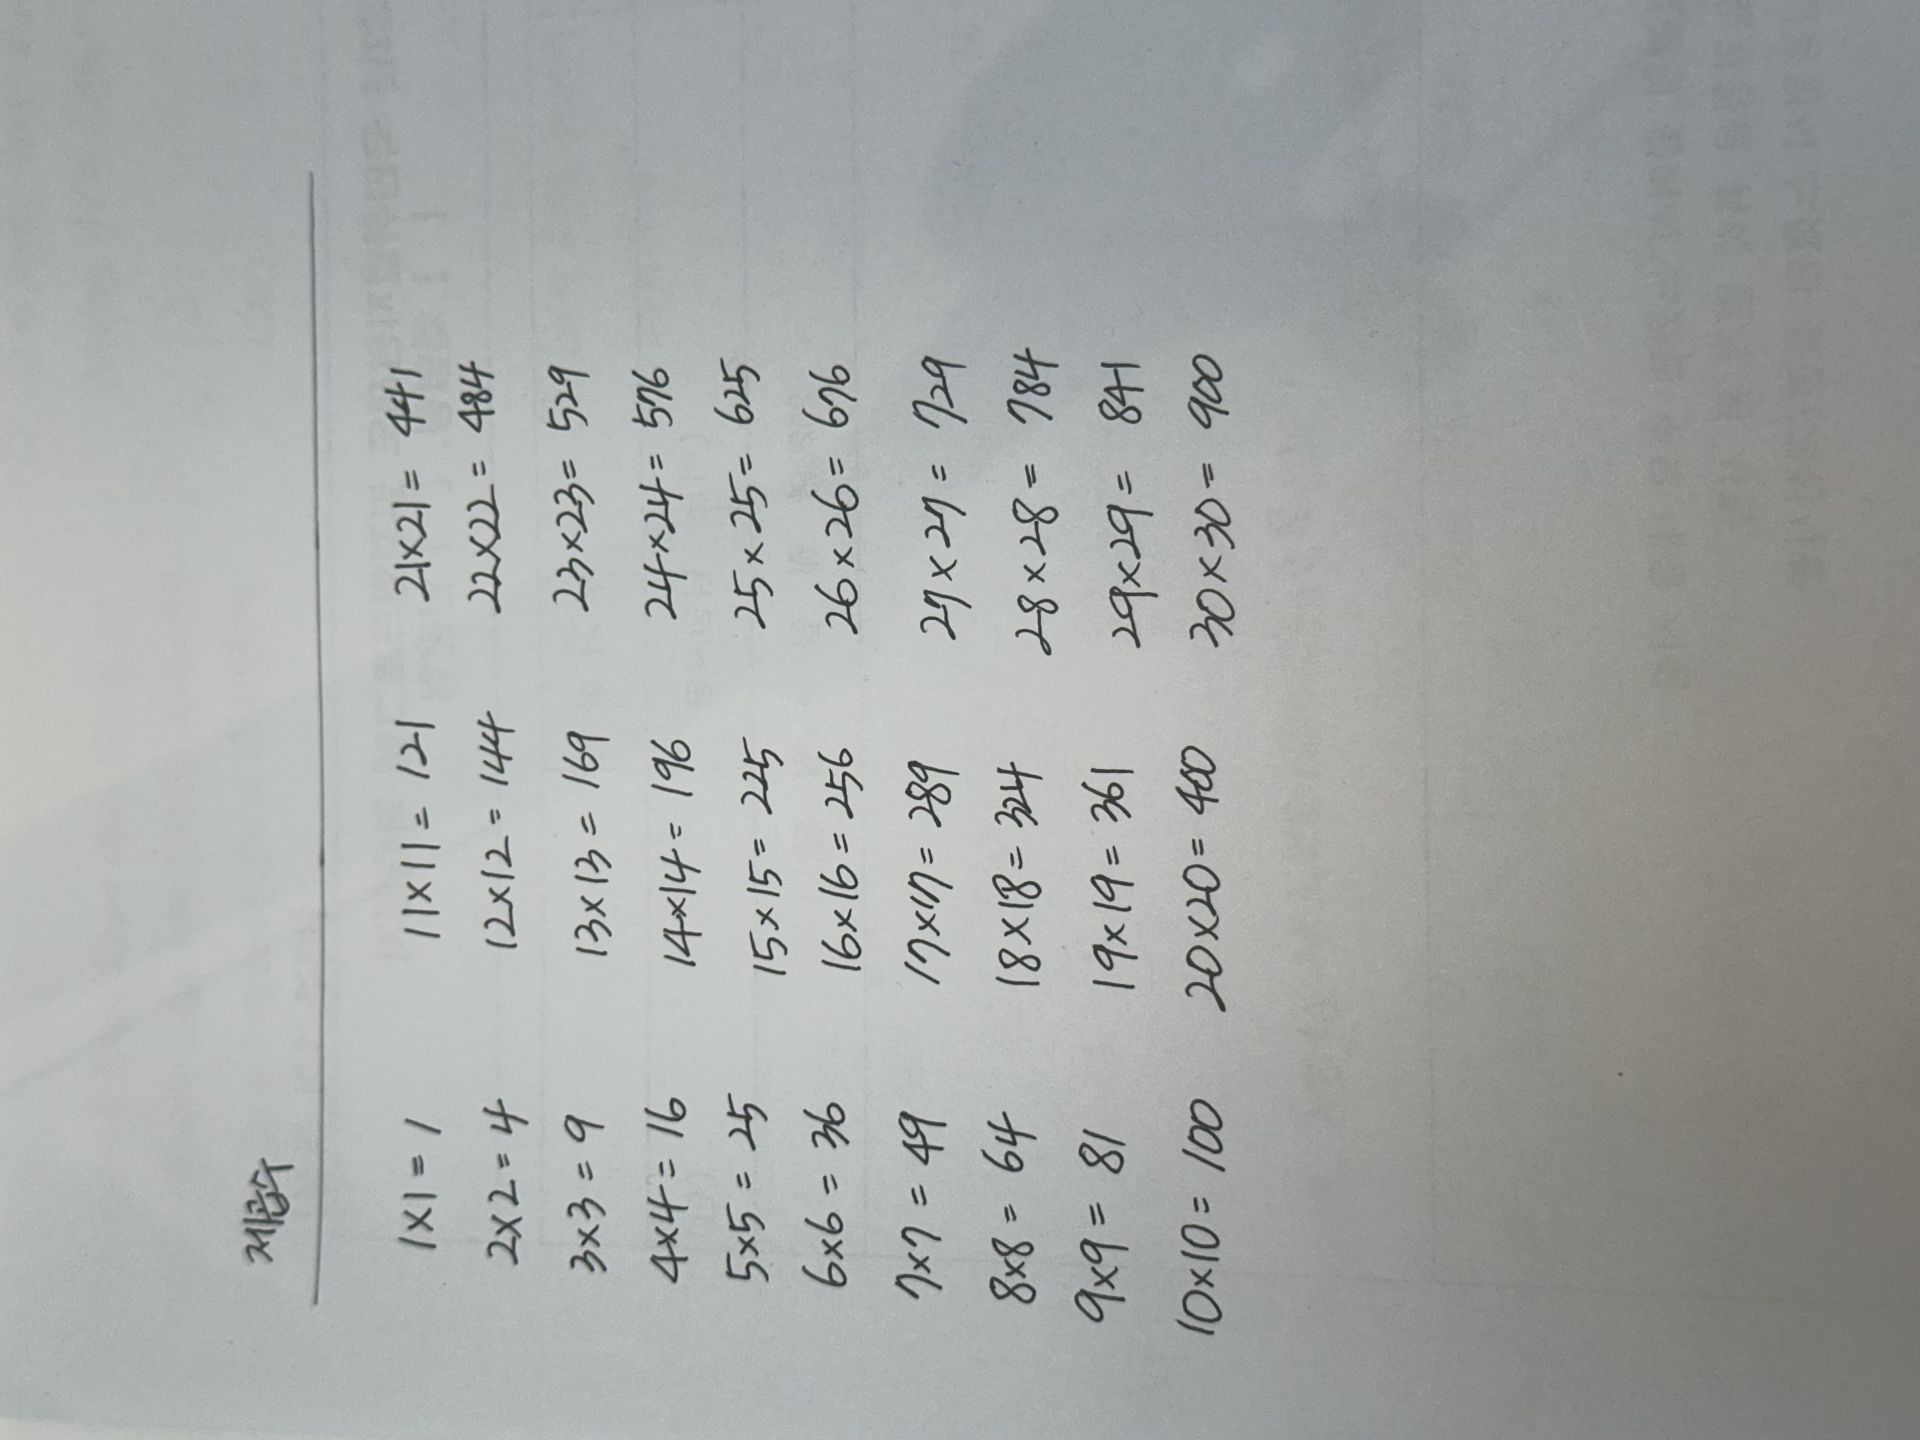 제곱수
1×1=1 11×11=121 21×21=441
2×2=4 12×12=144 22×22=484
3×3=9 13×13=169 23×23=529
4×4=16 14×14=196 24×24=576
5×5=25 15×15=225 25×25=625
6×6=36 16×16=256 26×26=676
7×7=49 17×17=289 27×27=729
8×8=64 18×18=324 28×28=784
9×9=81 19×19=361 29×29=841
10×10=100 20×20=400 30×30=900